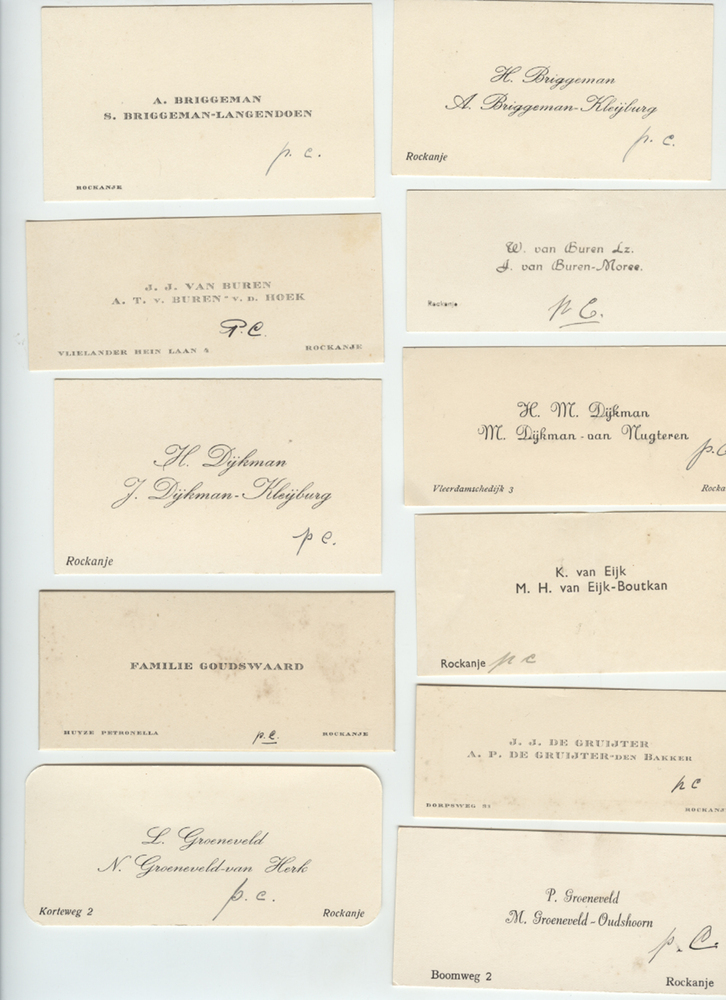 A. BRIGGEMAN
S. BRIGGEMAN-LANGENDOEN
p. c.
ROCKANJE
H. Briggeman
A. Briggeman-Kleijburg
p. c.
Rockanje
J. J. VAN BUREN
A. T. v. BUREN - v. D. HOEK
P.C.
VLIELANDER HEIN LAAN 8 ROCKANJE
W. van Buren Lz.
J. van Buren-Moree.
Rockanje
p C.
H. Dijkman
J. Dijkman-Kleijburg
p c.
Rockanje
H. M. Dijkman
M. Dijkman - van Nugteren
p.c
Vleerdamschedijk 3 Rocka
FAMILIE GOUDSWAARD
HUYZE PETRONELLA p.c. ROCKANJE
K. van Eijk
M. H. van Eijk-Boutkan
Rockanje p c
J. J. DE GRUIJTER
A. P. DE GRUIJTER-DEN BAKKER
p c
DORPSWEG ROCKANJ
L. Groeneveld
N. Groeneveld-van Herk
p. c.
Korteweg 2 Rockanje
P. Groeneveld
M. Groeneveld - Oudshoorn
p. C.
Boomweg 2 Rockanje